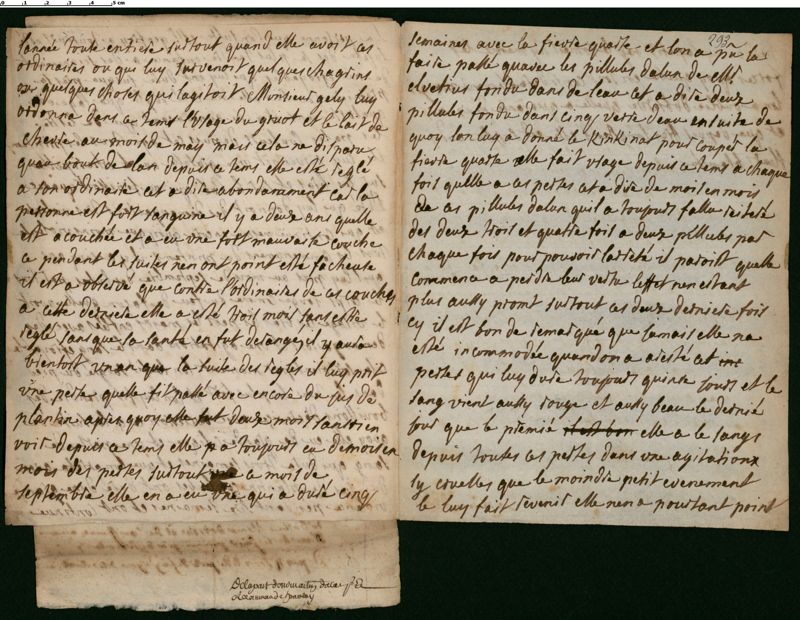 lannée toute entiere surtout quand elle avoit ces
ordinaires ou qui luy survenoit quelques chagrins
quelques choses qui lagitoit. Monsieur gely luy
ordonna dans ce tems lusage du gruot et le lait de
chevre au mois de may mais cela ne disparu
quau bout de lan depuis ce tems elle este reglé
a son ordinaire cet a dire abondamment car la
personne est fort sanguine il y a deux ans quelle
est acouchée et a eu une fort mauvaise couche
ce pendant les suites nen ont point esté facheuse
il est a observé que contre lordinaire de ces couches
a cette derniere elle a esté trois mois sans este
reglé sans que sa santé en fut derangé, il y aura
bientost un an que la suite des regles il luy prit
une perte quelle fit passé avec encore du jus de
plantin apres quoy elle fut deux mois sans rien
voir depuis ce tems elle a toujours eu de mois en
mois des pertes surtout ce mois de
septembre elle en a eu une qui a duré cinq
293
semaines avec la fievre quarte et lon a pu la
faire passé quavec les pillules dalun de Mr
elvetius fondu dans de leau cet a dire deux
pillules fondu dans cinq verre deau ensuite de
quoy lon luy a donné le kinkinat pour couper la
fievre quarte elle fait usage depuis ce tems a chaque
fois quelle a ces pertes cet a dire de mois en mois
de ces pillules dalun quil a toujours fallu reiteré
des deux trois et quatre fois a deux pillules par
chaque fois pour pouvoir larreté il paroist quelle
commence a perdre leur vertu leffet nen estant
plus aussy promt surtout ces deux derniere fois
cy il est bon de remarqué que jamais elle na
esté incommodée quand on a aresté cet
pertes qui luy dure toujours quinze jours et le
sang vient aussy rouge et aussy beau le dernié
jour que le premié il est bon elle a le sangs
depuis toutes ces pertes dans une agitation
sy cruelles que le moindre petit evenement
le luy fait revenir elle nen a pourtant point